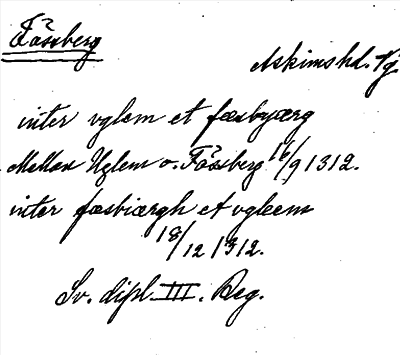 Fässberg
Askims hd. Vg
inter vglem et fæsbyærg
Mellan Uglem o. Fässberg 16/9 1312.
inter fæsbiærgh et vgleem
18/12 1312.
Sv. dipl. III. Reg.